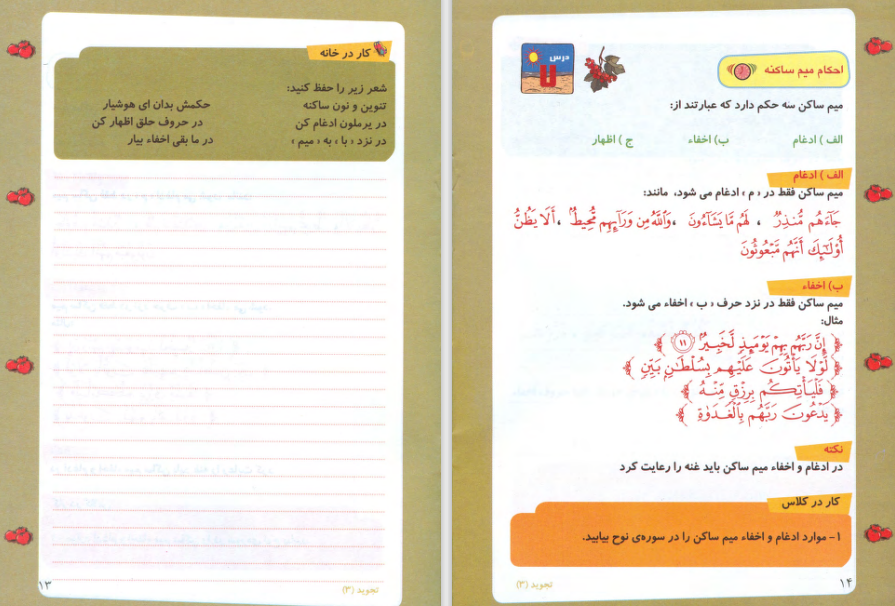 کار در خانه
شعر زیر را حفظ کنید:
تنوین و نون ساکنه حکمش بدان ای هوشیار
در یرملون ادغام کن در حروف حلق اظهار کن
در نزد «با» به «میم» در ما بقی اخفاء بیار
تجوید (۳)
۱۳
درس
احکام میم ساکنه
میم ساکن سه حکم دارد که عبارتند از:
الف) ادغام ب) اخفاء ج) اظهار
الف) ادغام
میم ساکن فقط در «م» ادغام می شود، مانند:
جَآءَهُم مُّنذِرٌ ، لَهُم مَّا يَشَآءُونَ ، وَٱللَّهُ مِن وَرَآئِهِم مُّحِيطٌ ، أَلَا يَظُنُّ
أُوْلَـٰٓئِكَ أَنَّهُم مَّبْعُوثُونَ
ب) اخفاء
میم ساکن فقط در نزد حرف «ب» اخفاء می شود.
مثال:
﴿ إِنَّ رَبَّهُم بِهِمْ يَوْمَئِذٍ لَّخَبِيرٌ ١١ ﴾
﴿ لَّوْلَا يَأْتُونَ عَلَيْهِم بِسُلْطَـٰنٍ بَيِّنٍ ﴾
﴿ فَلْيَأْتِكُم بِرِزْقٍ مِّنْهُ ﴾
﴿ يَدْعُونَ رَبَّهُم بِٱلْغَدَوٰةِ ﴾
نکته
در ادغام و اخفاء میم ساکن باید غنه را رعایت کرد
کار در کلاس
۱- موارد ادغام و اخفاء میم ساکن را در سوره‌ی نوح بیابید.
تجوید (۳)
۱۴